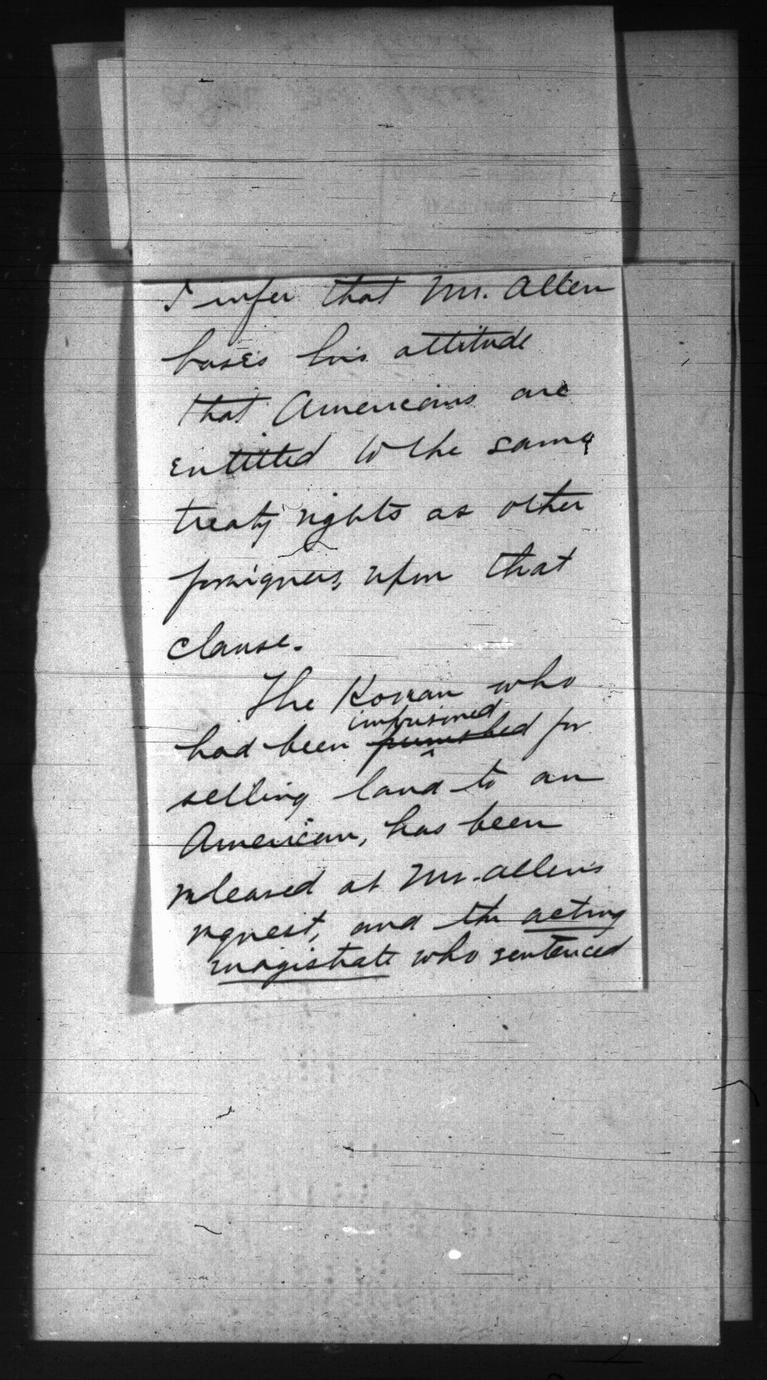 I infer that Mr. Allen
bases his attitude
that Americans are
entitled to the same
treaty rights as other
foreigners, upon that
clause.
The Korean who
had been punished imprisoned for
selling land to an
American, has been
released at Mr. Allen's
request, and the acting
magistrate who sentenced